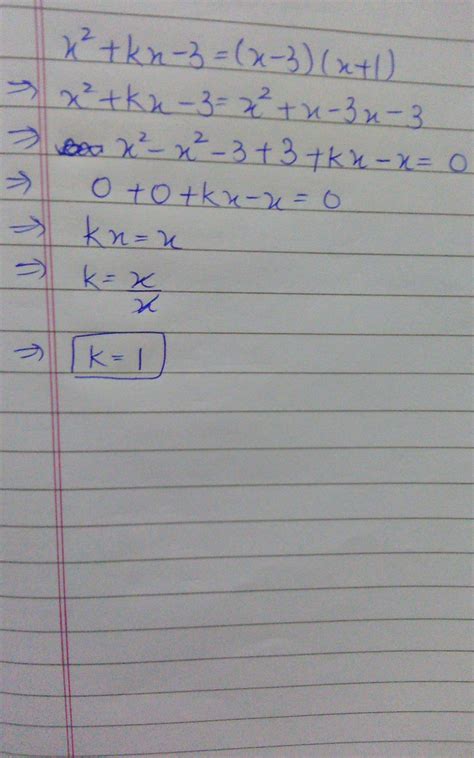 x² + kx - 3 = (x-3)(x+1)
⇒ x² + kx - 3 = x² + x - 3x - 3
⇒ x² - x² - 3 + 3 + kx - x = 0
⇒ 0 + 0 + kx - x = 0
⇒ kx = x
⇒ k = x/x
⇒ k = 1